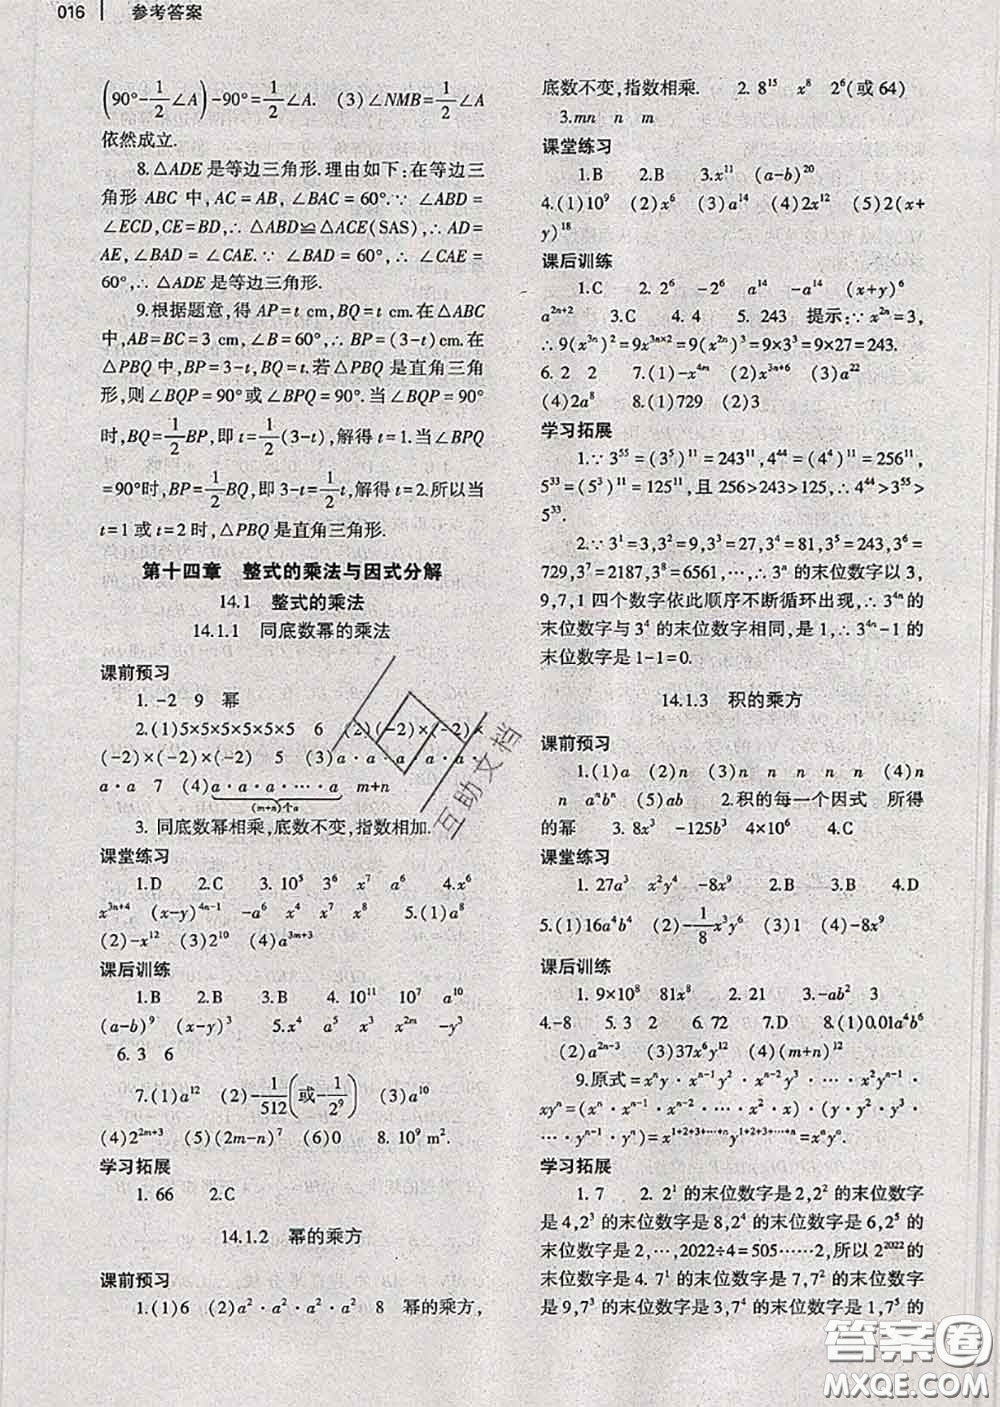 016 | 参考答案
(90°-1/2∠A)-90°=1/2∠A. (3)∠NMB=1/2∠A
依然成立.
8.△ADE是等边三角形.理由如下:在等边三
角形ABC中,AC=AB,∠BAC=60°.∵∠ABD=
∠ECD,CE=BD,∴△ABD≌△ACE(SAS),∴AD=
AE,∠BAD=∠CAE.∵∠BAD=60°,∴∠CAE=
60°,∴△ADE是等边三角形.
9.根据题意,得AP=t cm,BQ=t cm.在△ABC
中,AB=BC=3 cm,∠B=60°,∴BP=(3-t)cm.在
△PBQ中,BP=3-t,BQ=t.若△PBQ是直角三角
形,则∠BQP=90°或∠BPQ=90°.当∠BQP=90°
时,BQ=1/2BP,即t=1/2(3-t),解得t=1.当∠BPQ
=90°时,BP=1/2BQ,即3-t=1/2t,解得t=2.所以当
t=1或t=2时,△PBQ是直角三角形.
第十四章 整式的乘法与因式分解
14.1 整式的乘法
14.1.1 同底数幂的乘法
课前预习
1.-2 9 幂
2.(1)5×5×5×5×5×5 6 (2)(-2)×(-2)×
(-2)×(-2)×(-2) 5 (3)a·a·a·a·a·
a·a 7 (4)a·a·a·…·a m+n
(m+n)个a
3.同底数幂相乘,底数不变,指数相加.
课堂练习
1.D 2.C 3.10⁵ 3⁶ x⁷ a⁶ 4.x⁶
x³ⁿ⁺⁴ (x-y)⁴ⁿ⁻¹ -a⁶ x⁴ x⁷ x⁶ 5.(1)a⁸
(2)-x¹² (3)2¹⁰ (4)a³ᵐ⁺³
课后训练
1.B 2.B 3.B 4.10¹¹ 10⁷ a¹⁰
(a-b)⁹ (x-y)³ 5.x⁴ a⁵ x³ x²ᵐ -y³
6.3 6
7.(1)a¹² (2)-1/512(或-1/2⁹) (3)a¹⁰
(4)2²ᵐ⁺³ (5)(2m-n)⁷ (6)0 8.10⁹ m².
学习拓展
1.66 2.C
14.1.2 幂的乘方
课前预习
1.(1)6 (2)a²·a²·a²·a² 8 幂的乘方,
底数不变,指数相乘. 2.8¹⁵ x⁸ 2⁶(或64)
3.mn n m
课堂练习
1.B 2.B 3.x¹¹ (a-b)²⁰
4.(1)10⁹ (2)x⁶ (3)a¹⁴ (4)2x¹² (5)2(x+
y)¹⁸
课后训练
1.C 2.2⁶ -2⁶ a¹⁴ -a¹⁴ (x+y)⁶
a²ⁿ⁺² 3.C 4.4 5.243 提示:∵x²ⁿ=3,
∴9(x³ⁿ)²=9x³ⁿˣ²=9(x²ⁿ)³=9×3³=9×27=243.
6.2 2 7.(1)-x⁴ᵐ (2)x³ⁿ⁺⁶ (3)a²²
(4)2a⁸ 8.(1)729 (2)3
学习拓展
1.∵3⁵⁵=(3⁵)¹¹=243¹¹,4⁴⁴=(4⁴)¹¹=256¹¹,
5³³=(5³)¹¹=125¹¹,且256>243>125,∴4⁴⁴>3⁵⁵>
5³³.
2.∵3¹=3,3²=9,3³=27,3⁴=81,3⁵=243,3⁶=
729,3⁷=2187,3⁸=6561,…,∴3ⁿ的末位数字以3,
9,7,1四个数字依此顺序不断循环出现,∴3⁴ⁿ的
末位数字与3⁴的末位数字相同,是1,∴3⁴ⁿ-1的
末位数字是1-1=0.
14.1.3 积的乘方
课前预习
1.(1)a (2)n (3)n n n n n (4)n
n aⁿbⁿ (5)ab 2.积的每一个因式 所得
的幂 3.8x³ -125b³ 4×10⁶ 4.C
课堂练习
1.27a³ x²y⁴ -8x⁹ 2.B 3.B 4.D
5.(1)16a⁴b⁴ (2)-1/8x³y⁶ (3)1 (4)-8x⁹
课后训练
1.9×10⁸ 81x⁸ 2.21 3.-ab² 3
4.-8 5.3 2 6.72 7.D 8.(1)0.01a⁴b⁶
(2)a²ⁿ⁻³ (3)37x⁶y¹² (4)(m+n)¹²
9.原式=xⁿy·xⁿ⁻¹y²·xⁿ⁻²y³·…·x²yⁿ⁻¹·
xyⁿ=(xⁿ·xⁿ⁻¹·xⁿ⁻²·…·x²·x)·(y·y²·y³
·…·yⁿ⁻¹·yⁿ)=x¹⁺²⁺³⁺…⁺ⁿy¹⁺²⁺³⁺…⁺ⁿ=xᵃyᵃ.
学习拓展
1.7 2.2¹的末位数字是2,2²的末位数字
是4,2³的末位数字是8,2⁴的末位数字是6,2⁵的
末位数字是2,…,2022÷4=505……2,所以2²⁰²²
的末位数字是4.7¹的末位数字是7,7²的末位数字
是9,7³的末位数字是3,7⁴的末位数字是1,7⁵的
互助文档
答案圈
MXQE.COM